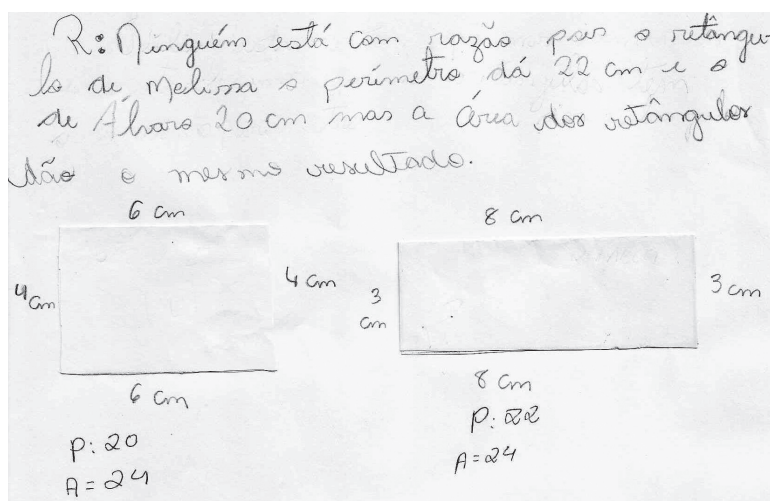 R: Ninguém está com razão pois o retângu-
lo de Melissa o perímetro dá 22 cm e o
de Álvaro 20 cm mas a área dos retângulos
dão o mesmo resultado.
6 cm
8 cm
4 cm
4 cm
3 cm
3 cm
6 cm
8 cm
P: 20
A = 24
P: 22
A = 24